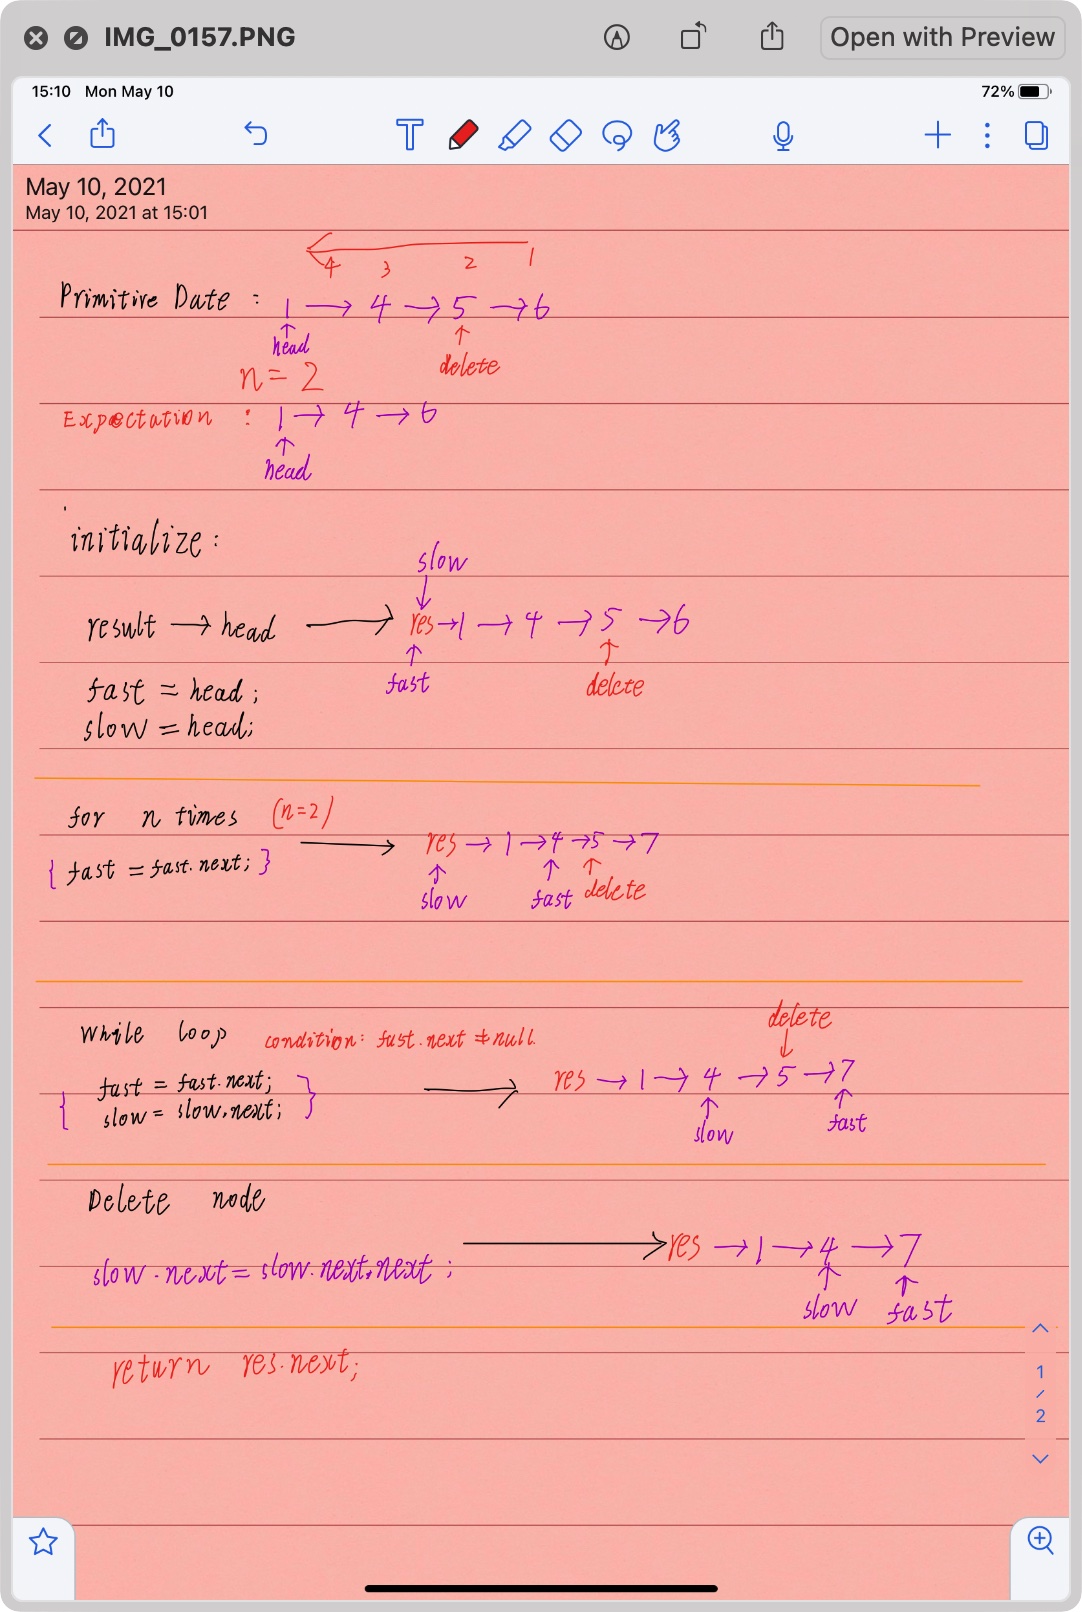 IMG_0157.PNG
Open with Preview
15:10 Mon May 10
72%
T
May 10, 2021
May 10, 2021 at 15:01
4 3 2 1
Primitive Date : 1 → 4 → 5 → 6
↑ ↑
head delete
n = 2
Expectation : 1 → 4 → 6
↑
head
initialize :
slow
↓
result → head → res → 1 → 4 → 5 → 6
↑ ↑
fast delete
fast = head ;
slow = head;
for n times (n=2)
→ res → 1 → 4 → 5 → 7
{ fast = fast.next; }
↑ ↑ ↑
slow fast delete
delete
↓
While loop condition: fast.next ≠ null.
{ fast = fast.next;
slow = slow.next; }
→ res → 1 → 4 → 5 → 7
↑ ↑
slow fast
Delete node
slow.next = slow.next.next ;
→ res → 1 → 4 → 7
↑ ↑
slow fast
return res.next;
1
/
2